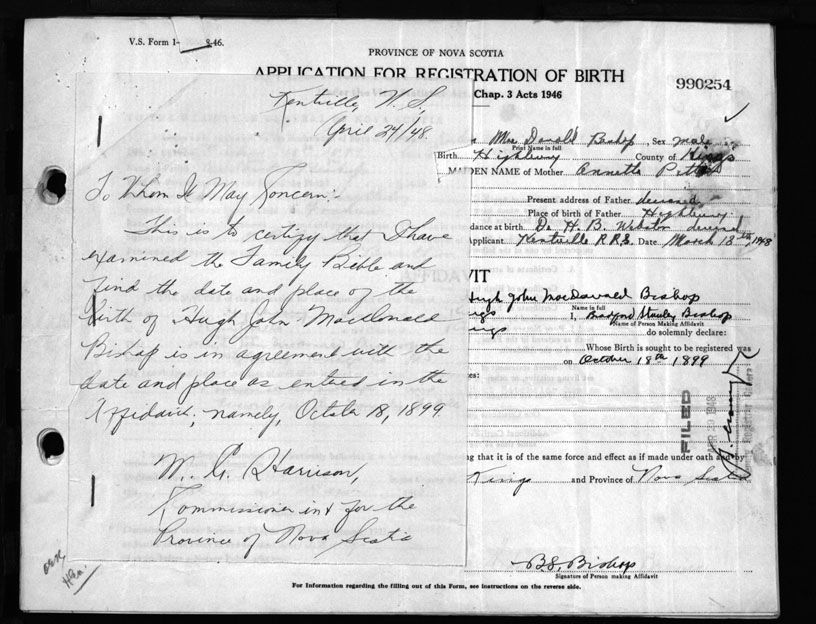 V.S. Form 1- 46.
PROVINCE OF NOVA SCOTIA
APPLICATION FOR REGISTRATION OF BIRTH
990254
Chap. 3 Acts 1946
Kentville, N. S.,
April 24/48.
To Whom It May Concern:-
This is to certify that I have
examined the Family Bible and
find the date and place of the
birth of Hugh John Macdonald
Bishop is in agreement with the
date and place as entered in the
Affidavit, namely, October 18, 1899
M. G. Harrison,
Commissioner in & for the
Province of Nova Scotia
Donald Bishop Sex male
Print Name in full
Birth Highbury County of Kings
MAIDEN NAME of Mother Annetta
Present address of Father deceased
Place of birth of Father Highbury
dance at birth Dr. H. B. Webster deceased
pplicant Kentville R.R.2. Date March 18th, 1948
VIT
Hugh John MacDavald Bishop
Name in full
ngs I, Bradford Stanley Bishop
Name of Person Making Affidavit
ngs do solemnly declare:
Whose Birth is sought to be registered was
on October 18th 1899
es:
FILED
APR 1948
ng that it is of the same force and effect as if made under oath and by
Kings and Province of Nova Scotia
B.S. Bishop
Signature of Person making Affidavit
For Information regarding the filling out of this Form, see instructions on the reverse side.